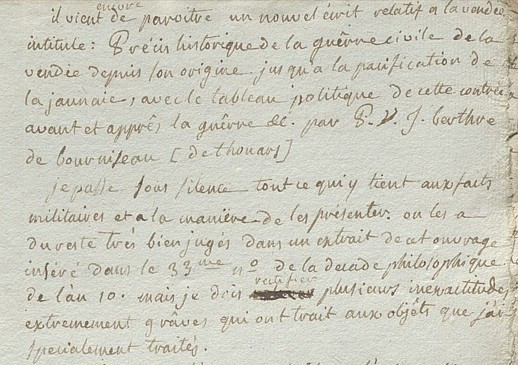 encore
il vient de paroître un nouvel écrit relatif a la vendée
intitule: Précis historique de la guêrre civile de la
vendée depuis son origine jusqu'a la pacification de
la jaunaie, avec le tableau politique de cette contrée
avant et apprês la guêrre &c. par P. V. J. berthre
de bourniseau [de thouars]
je passe sous silence tout ce qui y tient aux faits
militaires et a la manière de les présenter. on les a
du reste três bien jugés dans un extrait de cet ouvrage
inséré dans le 33me no de la decade philosophique
rectifier
de l'an 10. mais je dois plusieurs inexactitudes
extremement grâves qui ont trait aux objêts que j'ai
specialement traités.